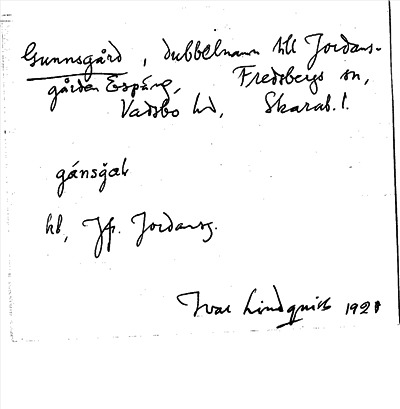 Gunnsgård, dubbelnamn till Jordans-
gården Espäng, Fredsbergs sn,
Vadsbo hd, Skarab. l.
gánsg̊aḷ
hd, Jfr. Jordansg.
Ivar Lindquist 1921